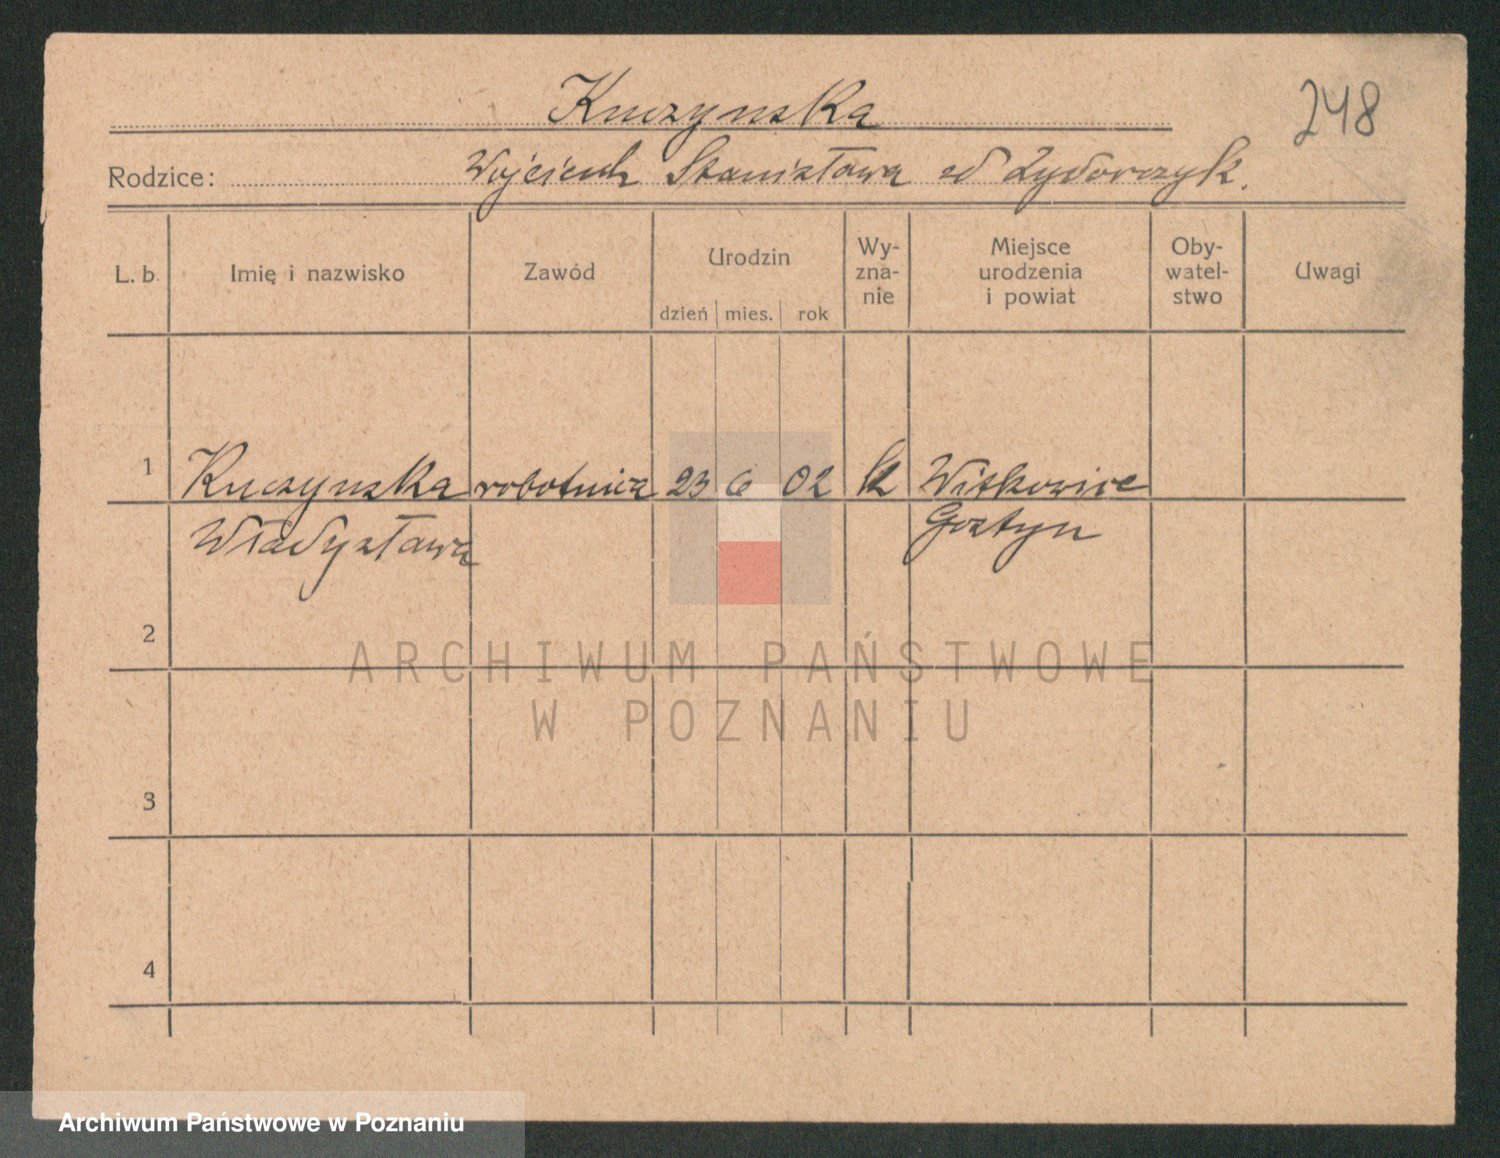 Kuczynska
248
Rodzice: Wojciech Stanisława
L. b. Imię i nazwisko Zawód Urodzin dzień mies. rok Wy-zna-nie Miejsce urodzenia i powiat Oby-watel-stwo Uwagi
1 Kuczynska robotnica 23 6 02 k Witkowice
Władysława Gostyn
2
3
4
ARCHIWUM PAŃSTWOWE
W POZNANIU
Archiwum Państwowe w Poznaniu